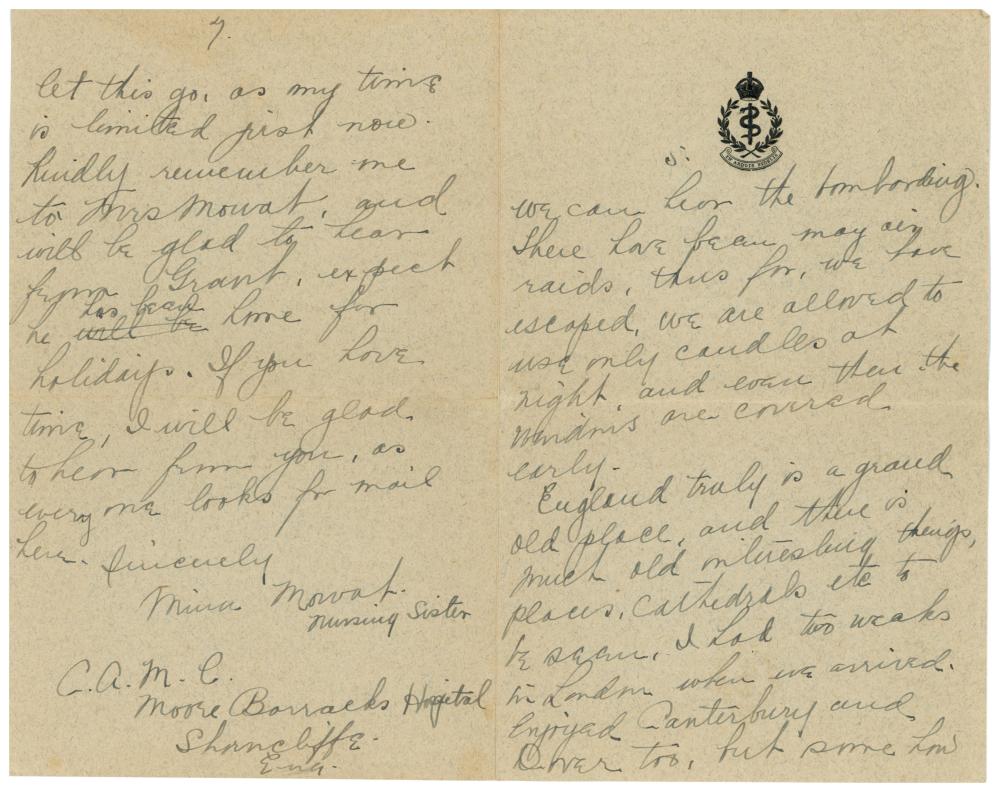 7.
let this go, as my time
is limited just now.
Kindly remember me
to Mrs Mowat, and
will be glad to hear
from Grant, expect
has been
he will be home for
holidays. If you have
time, I will be glad
to hear from you, as
every one looks for mail
here. Sincerely
Mina Mowat.
Nursing Sister
C.A.M.C.
Moore Barracks Hospital
Shorncliffe.
Eng.
IN ARDUIS FIDELIS
5.
we can hear the bombarding.
There have been may air
raids, thus far, we have
escaped, we are allowed to
use only candles at
night, and even then the
windows are covered
early.
England truly is a grand
old place, and there is
much old interesting things,
places, Cathedrals etc to
be seen, I had two weeks
in London when we arrived.
Enjoyed Canterbury and
Dover too, but some how